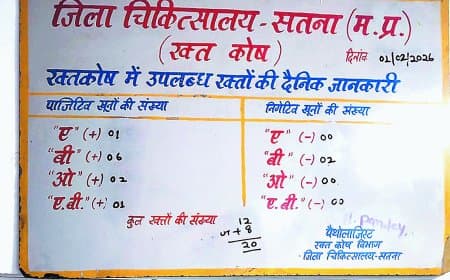 जिला चिकित्सालय - सतना (म.प्र.)
(रक्त कोष)
दिनांक 01/02/2026
रक्तकोष में उपलब्ध रक्तों की दैनिक जानकारी
पाजिटिव ग्रुपों की संख्या
निगेटिव ग्रुपों की संख्या
"ए" (+) 01
"ए" (-) 00
"बी" (+) 06
"बी" (-) 02
"ओ" (+) 02
"ओ" (-) 00
"ए.बी." (+) 01
"ए.बी." (-) 00
कुल रक्तों की संख्या
12
+ 8
20
Pandey
पैथोलाजिस्ट
रक्त कोष विभाग
जिला चिकित्सालय-सतना